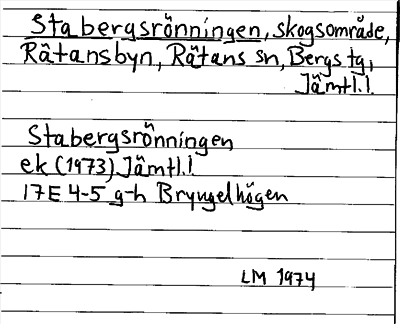 Stabergsrönningen, skogsområde,
Rätansbyn, Rätans sn, Bergs tg,
Jämtl.l.
Stabergsrönningen
ek (1973) Jämtl.l
17E 4-5 g-h Bryngelhögen
LM 1974